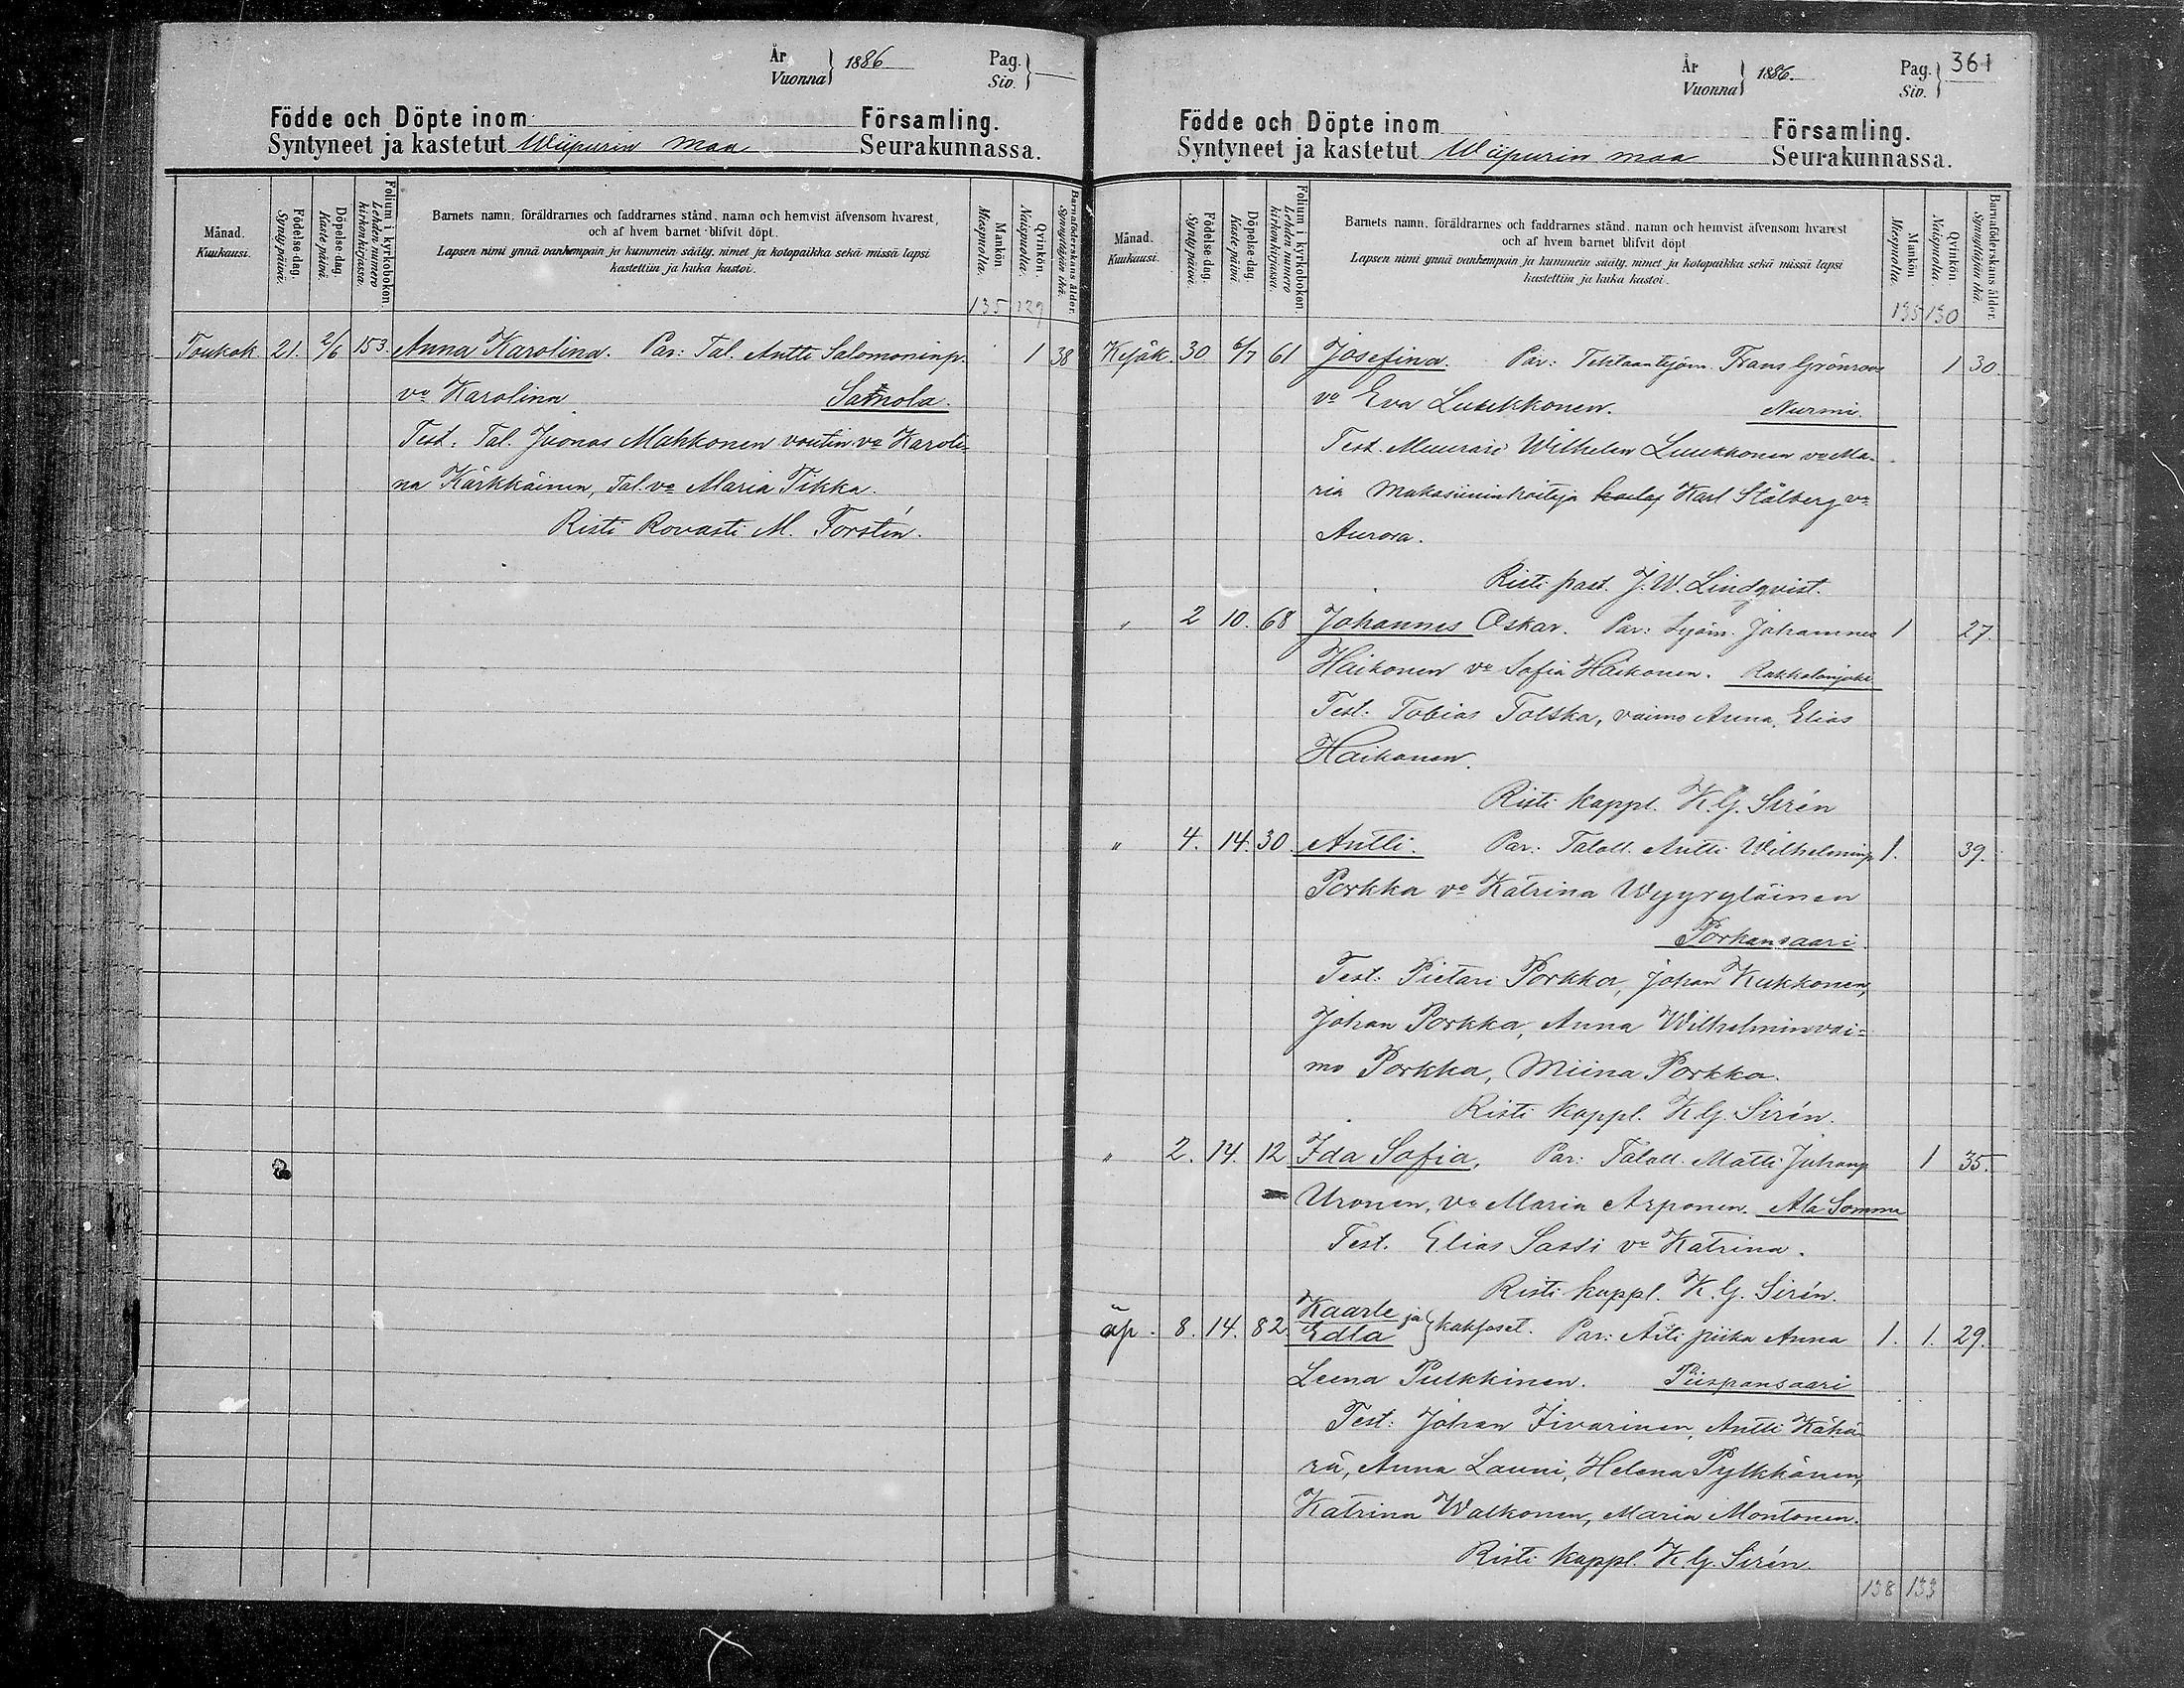 År
Vuonna } 1886
Pag.
Siv. } —
Födde och Döpte inom Församling.
Syntyneet ja kastetut Wiipurin maa Seurakunnassa.
Månad.
Kuukausi.
Födelse-dag.
Syntypäivä.
Döpelse-dag.
Kastepäivä.
Folium i kyrkoboken.
Lehden numero
kirkonkirjassa.
Barnets namn, föräldrarnes och faddrarnes stånd, namn och hemvist äfvensom hvarest,
och af hvem barnet blifvit döpt.
Lapsen nimi ynnä vanhempain ja kummein sääty, nimet ja kotopaikka sekä missä lapsi
kastettiin ja kuka kastoi.
Mankön
Miespuolia.
Qvinkön.
Naispuolia.
Barnaföderskans ålder.
Synnyttäjän ikä.
135 129
Toukok 21. 2/6 153. Anna Karolina. Par: Tal. Antti Salomoninp. 1 38
vo Karolina Samola.
Test: Tal. Juonas Mahkonen voutin vo Karoli-
na Kärkkäinen, Tal. vo Maria Tikka.
Risti Rovasti M. Forstén.
År
Vuonna } 1886.
Pag.
Siv. } 361
Födde och Döpte inom Församling.
Syntyneet ja kastetut Wiipurin maa Seurakunnassa.
Månad.
Kuukausi.
Födelse-dag.
Syntypäivä.
Döpelse-dag.
Kastepäivä.
Folium i kyrkoboken.
Lehden numero
kirkonkirjassa.
Barnets namn, föräldrarnes och faddrarnes stånd, namn och hemvist äfvensom hvarest
och af hvem barnet blifvit döpt.
Lapsen nimi ynnä vanhempain ja kummein sääty, nimet ja kotopaikka sekä missä lapsi
kastettiin ja kuka kastoi.
Mankön
Miespuolia.
Qvinkön.
Naispuolia.
Barnaföderskans ålder.
Synnyttäjän ikä.
135 130
Kesäk. 30 6/7 61 Josefina. Par: Tehtaantyöm. Frans Grönroos 1 30.
vo Eva Luukkonen. Nurmi.
Test. Muurari Wilhelm Luukkonen vo Ma-
ria Makasiininhoitaja Karl Stålberg vo
Aurora.
Risti past. J. W. Lindqvist.
" 2 10. 68 Johannes Oskar. Par: Työm. Johannes 1 27.
Haikonen vo Sofia Haikonen. Rakkolanjoki
Test: Tobias Tolska, vaimo Anna, Elias
Haikonen.
Risti kappl. K. G. Sirén
" 4. 14. 30. Antti. Par: Taloll. Antti Wilhelminp 1. 39.
Porkka vo Katrina Wyyryläinen
Porkansaari.
Test: Pietari Porkka, Johan Kukkonen,
Johan Porkka, Anna Wilhelmin vai-
mo Porkka, Miina Porkka.
Risti kappl. K. G. Sirén.
" 2. 14. 12 Ida Sofia. Par: Taloll. Matti Juhanp 1 35.
Uronen, vo Maria Arponen. Ala Somme
Test. Elias Sassi vo Katrina.
Risti kappl. K. G. Sirén.
äp. 8. 14. 82 Kaarle ja
Edla } kaksoset. Par: Äiti piika Anna 1. 1. 29.
Leena Pulkkinen. Piispansaari
Test: Johan Iivarinen, Antti Kähä-
rä, Anna Launi, Helena Pylkkänen,
Katrina Walkonen, Maria Montonen.
Risti kappl. K. G. Sirén.
138 133